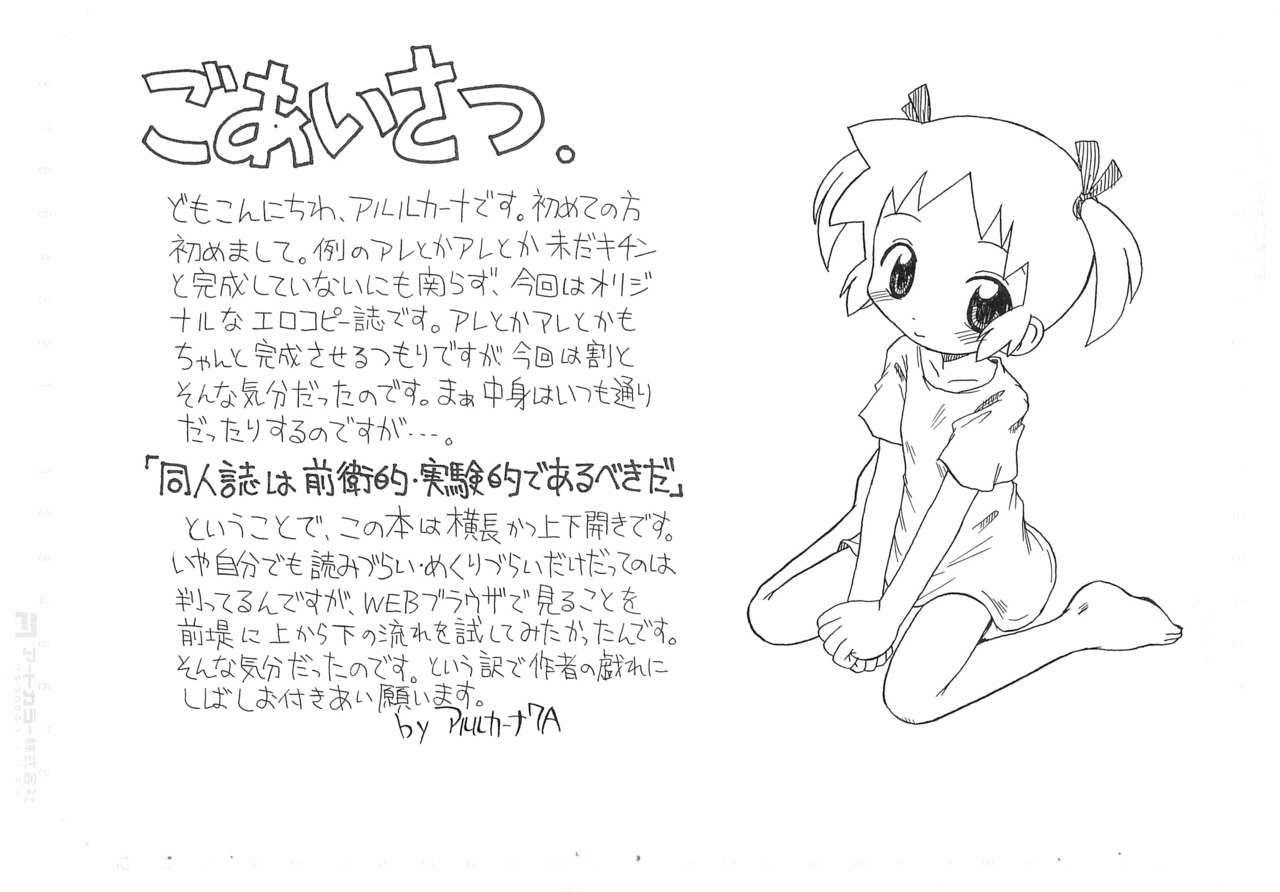 ごあいさつ。
どもこんにちわ、アルルカーナです。初めての方
初めまして。例のアレとかアレとか未だキチン
と完成していないにも関らず、今回はオリジ
ナルなエロコピー誌です。アレとかアレとかも
ちゃんと完成させるつもりですが今回は割と
そんな気分だったのです。まぁ中身はいつも通り
だったりするのですが…。
「同人誌は前衛的・実験的であるべきだ」
ということで、この本は横長かつ上下開きです。
いや自分でも読みづらい・めくりづらいだけだってのは
判ってるんですが、WEBブラウザで見ることを
前堤に上から下の流れを試してみたかったんです。
そんな気分だったのです。という訳で作者の戯れに
しばしお付きあい願います。
by アルルカーナ7A